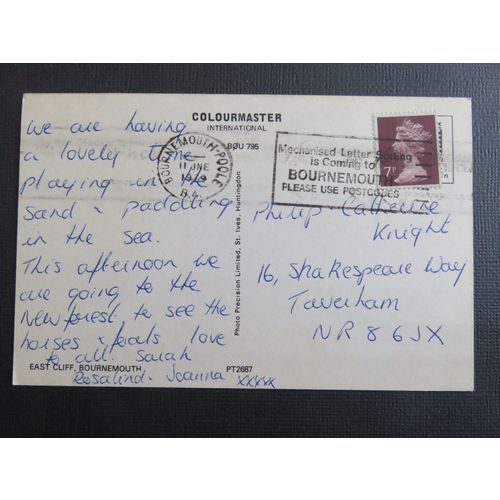 COLOURMASTER
INTERNATIONAL
BOU 795
We are having
a lovely time
playing in the
sand & paddling
in the sea.
This afternoon we
are going to the
New forest to see the
horses & foals love
to all. Sarah
Rosalind. Joanna xxxxx
EAST CLIFF, BOURNEMOUTH
PT2687
Photo Precision Limited, St. Ives, Huntingdon
BOURNEMOUTH-POOLE
11 JNE
1979
Mechanised Letter Sorting
is Coming to
BOURNEMOUTH
PLEASE USE POSTCODES
7P
Philip - Catherine
Knight
16, Shakespeare Way
Taverham
NR8 6JX